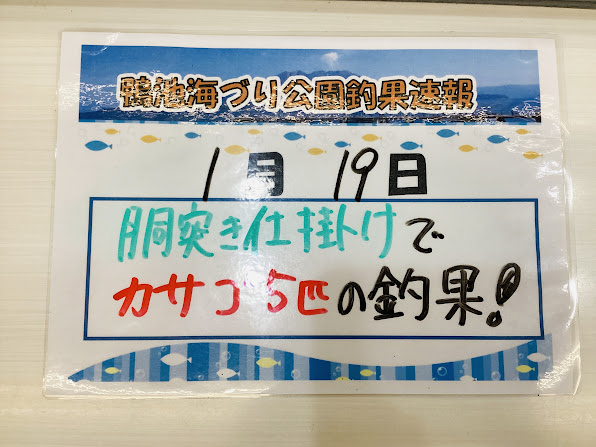 鴨池海づり公園釣果速報
1月 19日
胴突き仕掛けで
カサゴ5匹の釣果!